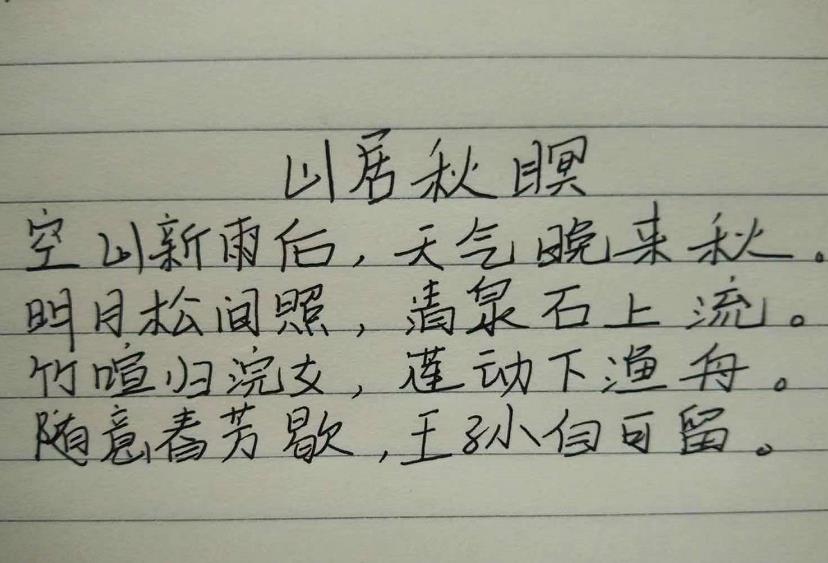 山居秋暝
空山新雨后，天气晚来秋。
明月松间照，清泉石上流。
竹喧归浣女，莲动下渔舟。
随意春芳歇，王孙自可留。